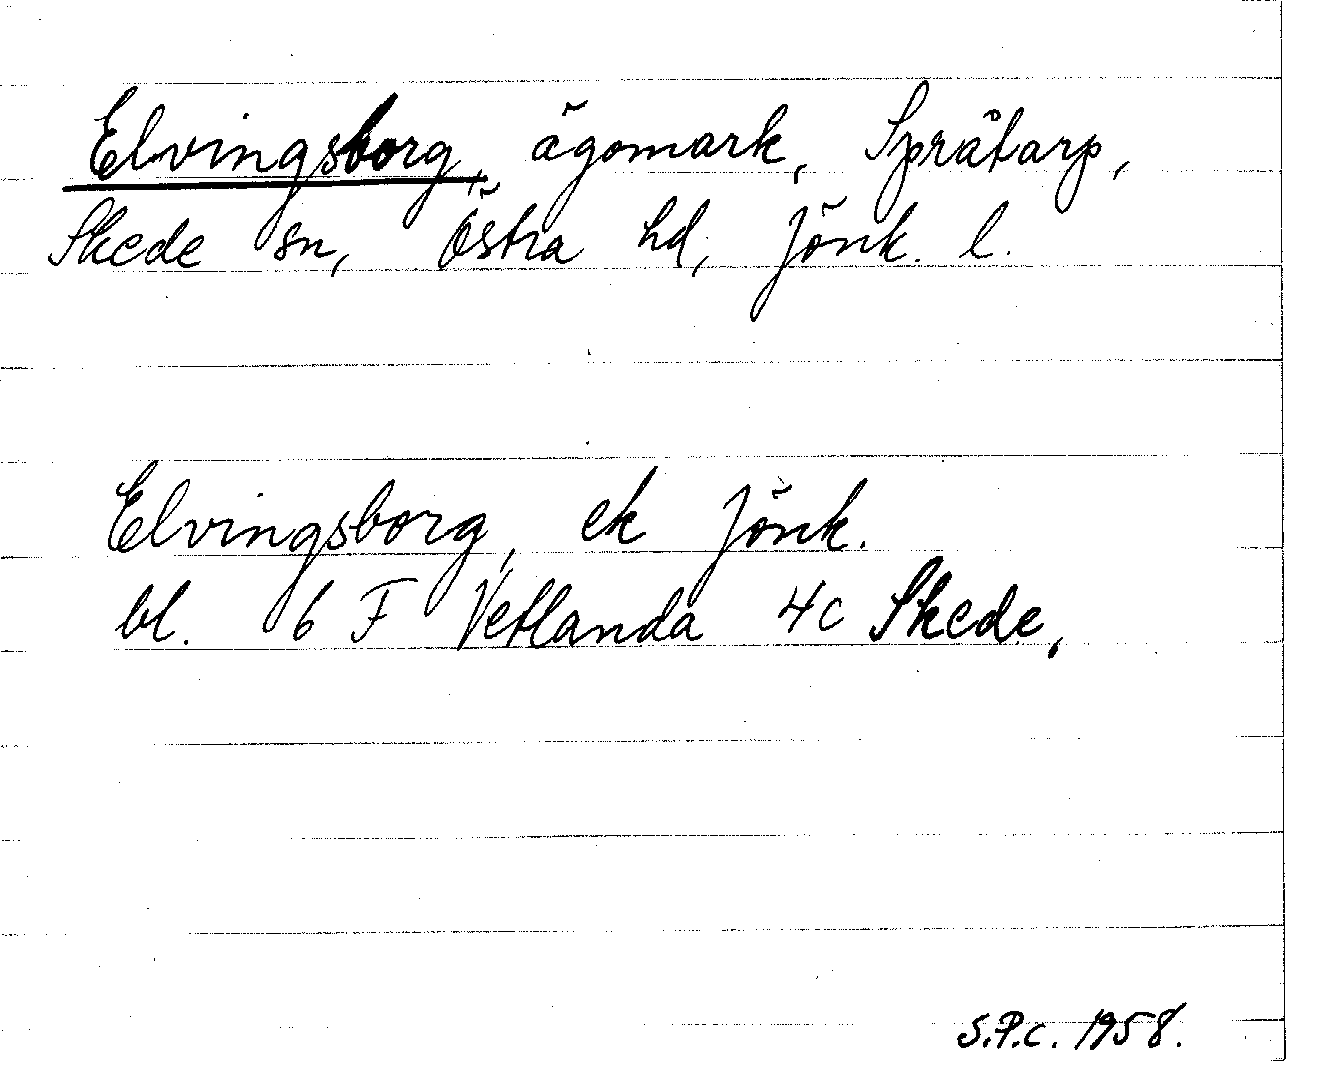 Elvingsborg, ägomark, Språtarp,
Skede sn, Östra hd, Jönk. l.
Elvingsborg, ek Jönk.
bl. 6 F Vetlanda 4c Skede,
S.P.C. 1958.